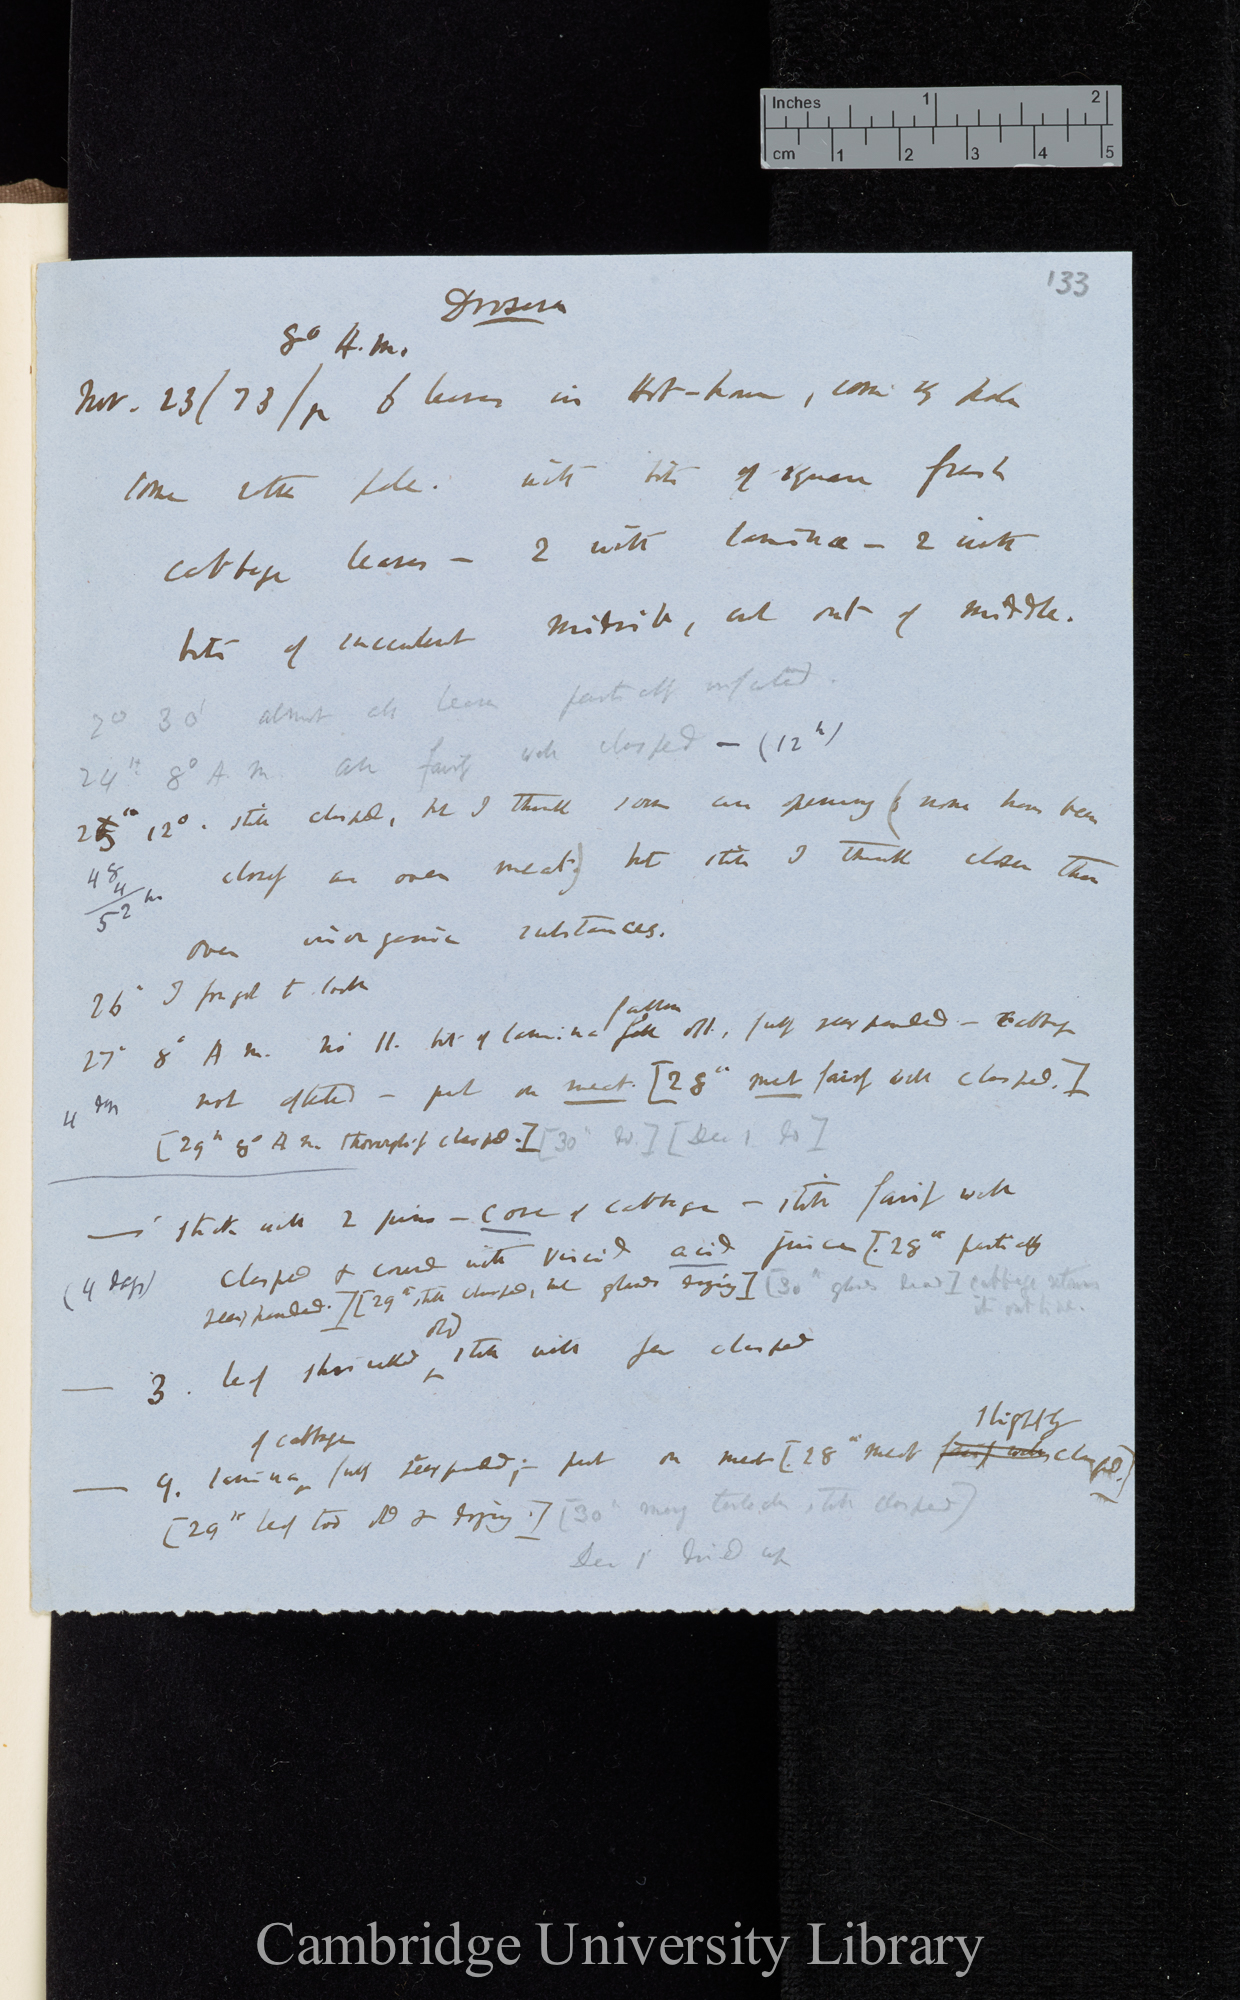 Inches 1 2
cm 1 2 3 4 5
133
Drosera
8° A.M.
Nov. 23/73/ 6 leaves in Hot-house, some pale
some rather pale. with bits of square fresh
cabbage leaves – 2 with lamina – 2 with
bits of succulent midrib, cut out of middle.
2° 30' almost all leaves partially inflected.
24th 8° A.M. all fairly well clasped – (12h)
25th 12°. still clasped, but I think some are opening (& none have been
48 closely as over meat) but still I think closer than
4
52 hrs
over inorganic substances.
26th I forgot to look
fallen
27th 8° A.M. No 11. bit of lamina off, fully reexpanded – cabbage
4 days not affected – put on meat. [28th meat fairly well clasped.]
[29th 8° A.M. thoroughly clasped.] [30th do.] [Dec 1. do]
— stuck with 2 pins – core of cabbage – still fairly well
(4 days) clasped & covered with viscid acid juice [28th partially
reexpanded.] [29th still clasped, but glands drying] [30th glands dead] cabbage retains
its outline.
old
— 3. leaf shrivelled still with few clasped
slightly
of cabbage
— 9. lamina fully reexpanded; – put on meat [28th meat fairly well clasped.]
[29th leaf too old & drying.] [30th many tentacles still clasped]
Dec 1 dried up
Cambridge University Library